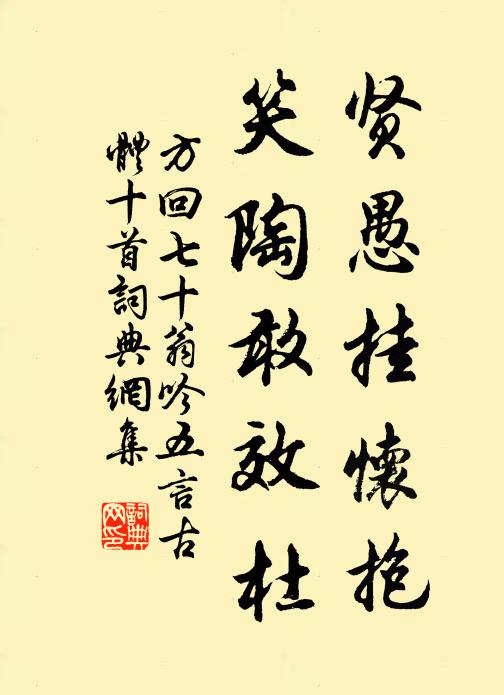 贤愚挂懷抱
笑陶敢效杜
方回七十翁吟五言古
體十首詞典網集
詞典網印